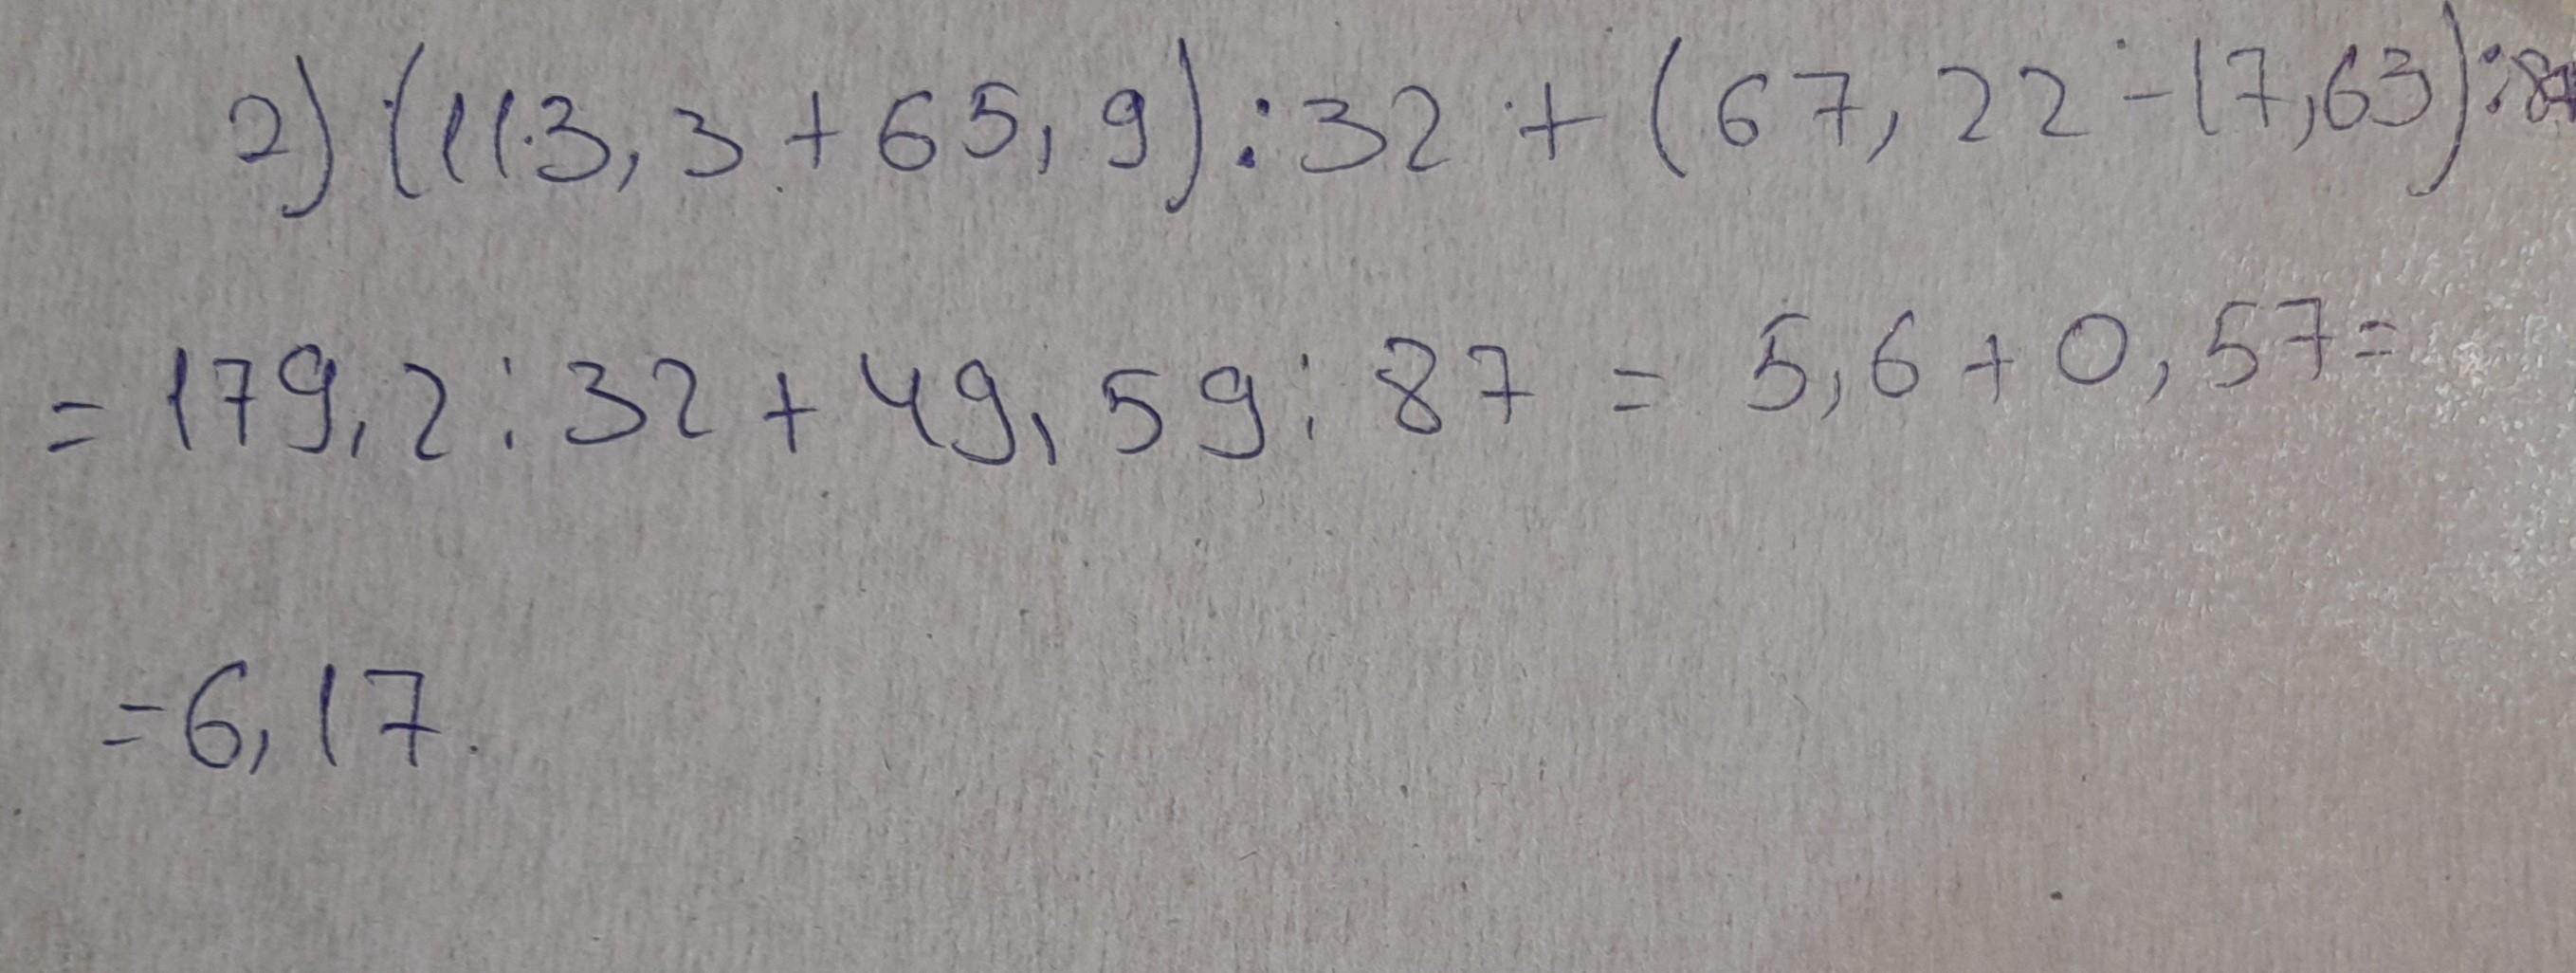 2) (113,3 + 65,9) : 32 + (67,22 - 17,63) : 8
= 179,2 : 32 + 49,59 : 87 = 5,6 + 0,57 =
= 6,17.